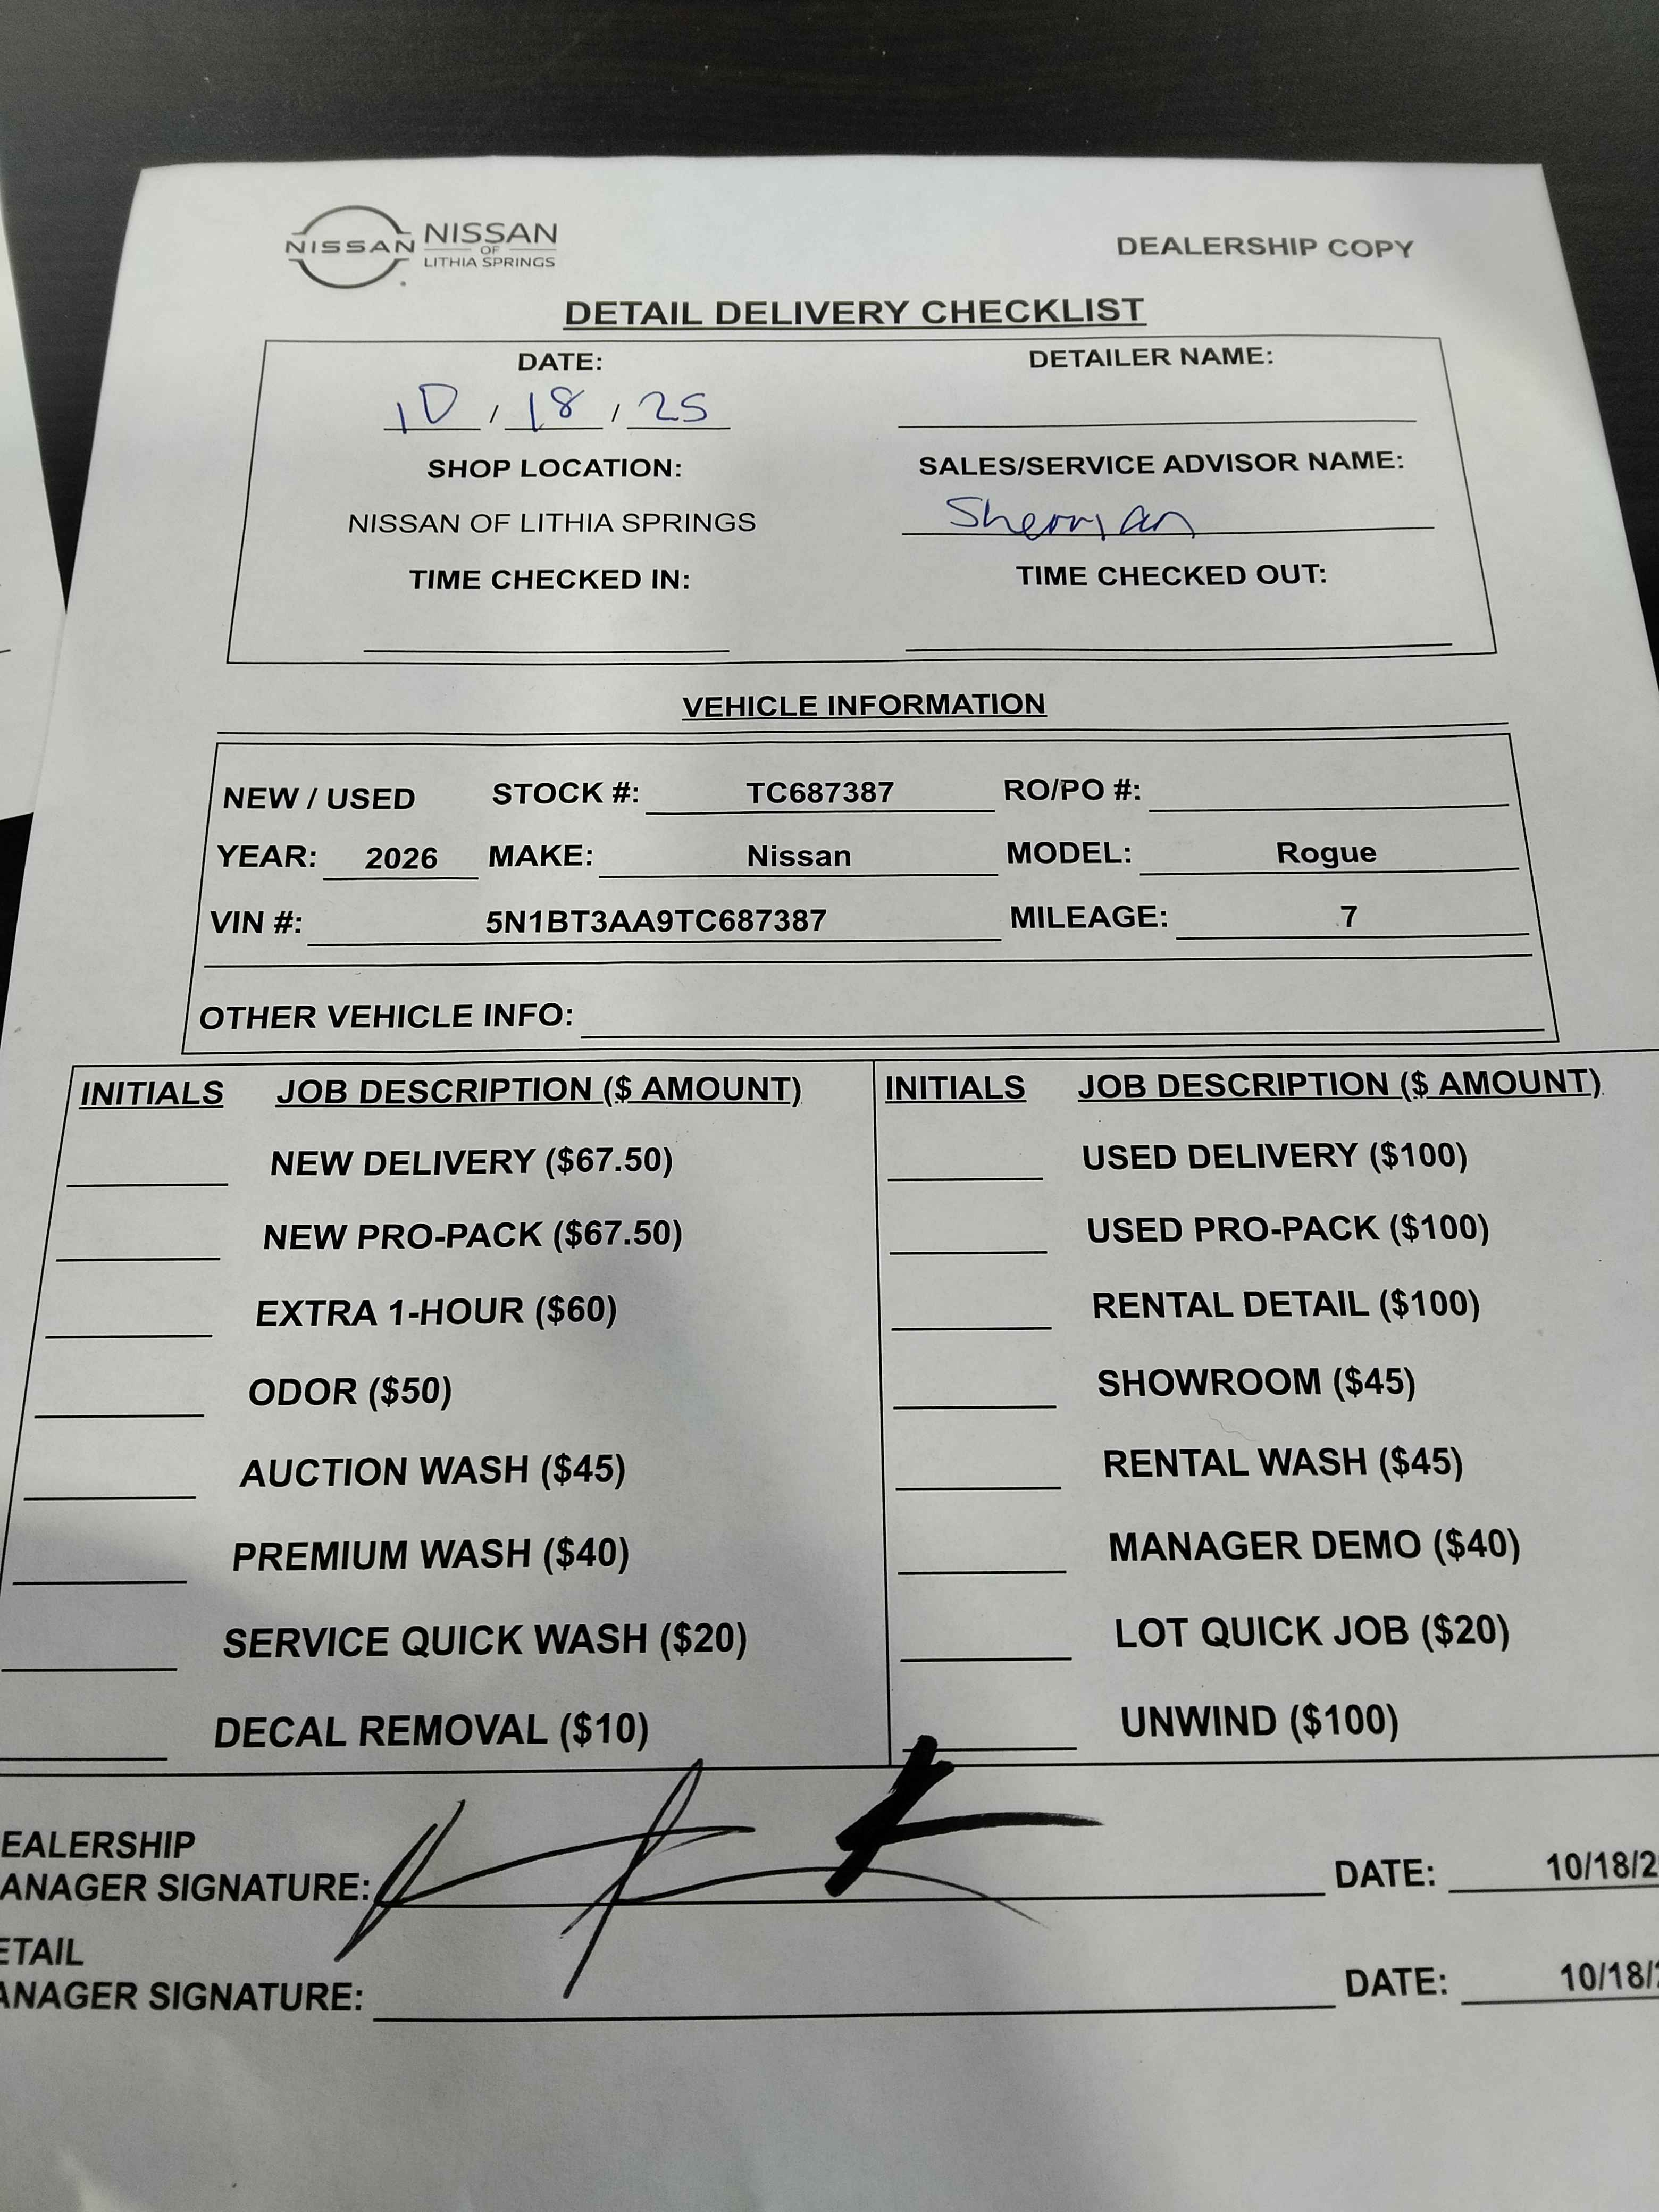 NISSAN NISSAN
OF
LITHIA SPRINGS
DEALERSHIP COPY
DETAIL DELIVERY CHECKLIST
DATE: DETAILER NAME:
10 / 18 / 25
SHOP LOCATION: SALES/SERVICE ADVISOR NAME:
NISSAN OF LITHIA SPRINGS Sherman
TIME CHECKED IN: TIME CHECKED OUT:
VEHICLE INFORMATION
NEW / USED STOCK #: TC687387 RO/PO #:
YEAR: 2026 MAKE: Nissan MODEL: Rogue
VIN #: 5N1BT3AA9TC687387 MILEAGE: 7
OTHER VEHICLE INFO:
INITIALS JOB DESCRIPTION ($ AMOUNT) INITIALS JOB DESCRIPTION ($ AMOUNT)
NEW DELIVERY ($67.50) USED DELIVERY ($100)
NEW PRO-PACK ($67.50) USED PRO-PACK ($100)
EXTRA 1-HOUR ($60) RENTAL DETAIL ($100)
ODOR ($50) SHOWROOM ($45)
AUCTION WASH ($45) RENTAL WASH ($45)
PREMIUM WASH ($40) MANAGER DEMO ($40)
SERVICE QUICK WASH ($20) LOT QUICK JOB ($20)
DECAL REMOVAL ($10) UNWIND ($100)
EALERSHIP
ANAGER SIGNATURE: DATE: 10/18/2
ETAIL
ANAGER SIGNATURE: DATE: 10/18/